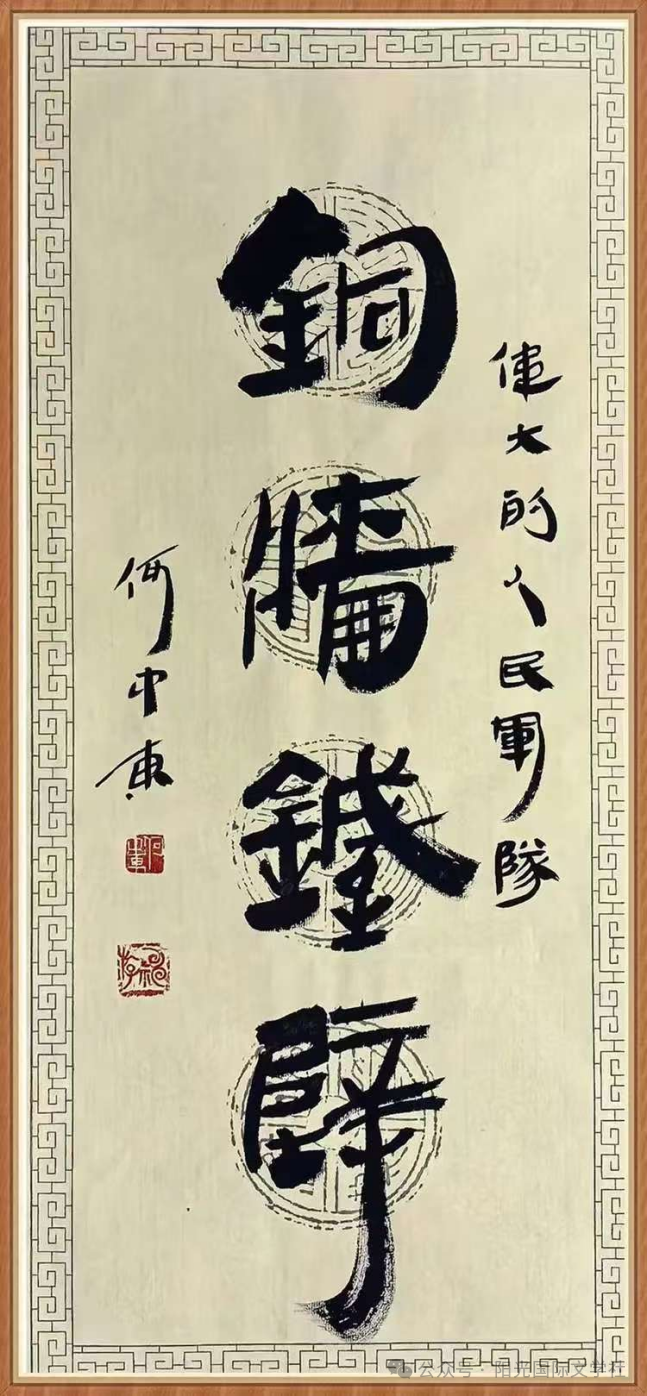 偉大的人民軍隊
銅牆鐵壁
何中東
公众号 · 阳光国际文学社